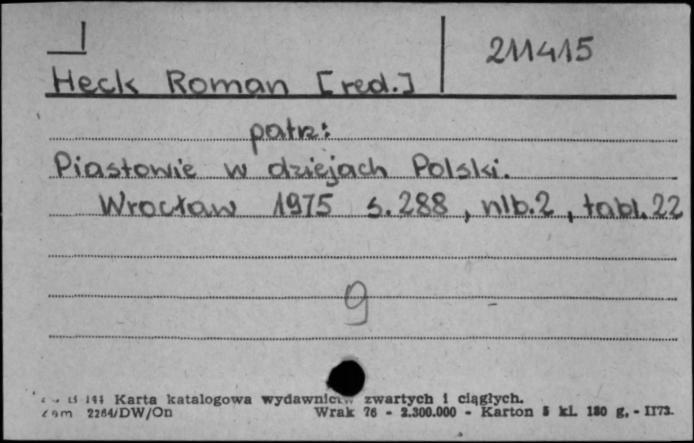 211415
Heck Roman [red.]
patrz:
Piastowie w dziejach Polski.
Wrocław 1975 s. 288, nlb. 2, tabl. 22
9
Karta katalogowa wydawnictw zwartych i ciągłych.
2264/DW/On Wrak 76 - 2.300.000 - Karton 5 kl. 180 g. - II73.